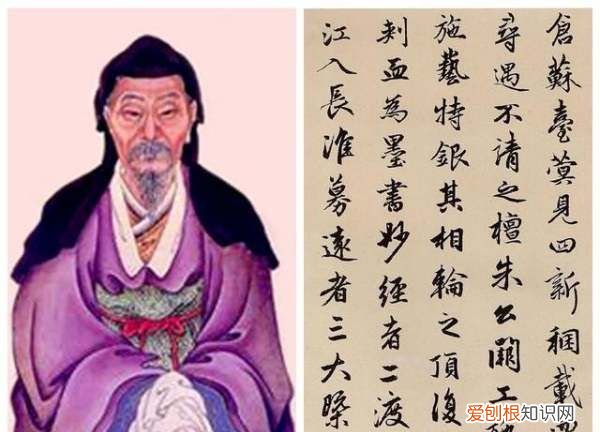 倉蘇臺蓂見四新稛載
尋遇不請之檀朱公闢工
施藝特銀其相輪之頂復
刺血為墨書妙經者二渡
江入長淮募遠者三大
爱刨根知识网